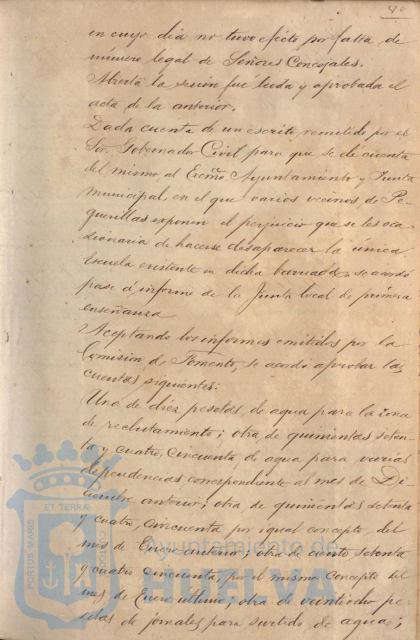 40
en cuyo dia no tuvo efecto por falta de
número legal de Señores Concejales.
Abierta la sesión fué leida y aprobada el
acta de la anterior.
Dada cuenta de un escrito remitido por el
Sor. Gobernador Civil para que se dé cuenta
del mismo al Excmo Ayuntamiento y Junta
municipal, en el que varios vecinos de Pe-
guerillas exponen el perjuicio que se les oca-
sionaria de hacerse desaparecer la única
Escuela existente en dicha barriada, se acordó
pase á informe de la Junta local de primera
enseñanza
Aceptando los informes emitidos por la
Comision de Fomento, se acordó aprobar las
cuentas siguientes:
Una de diez pesetas, de agua para la zona
de reclutamiento; otra, de quinientas seten-
ta y cuatro, cincuenta de agua para varias
dependencias correspondiente al mes de Di-
ciembre anterior; otra de quinientas setenta
y cuatro, cincuenta por igual concepto del
mes de Enero anterior; otra de ciento setenta
y cuatro cincuenta, por el mismo concepto del
mes de Enero último; otra de veintiocho pe-
setas de jornales para surtido de agua;
ET TERRAE
PORTUS MARIS
Ayuntamiento de
HUELVA